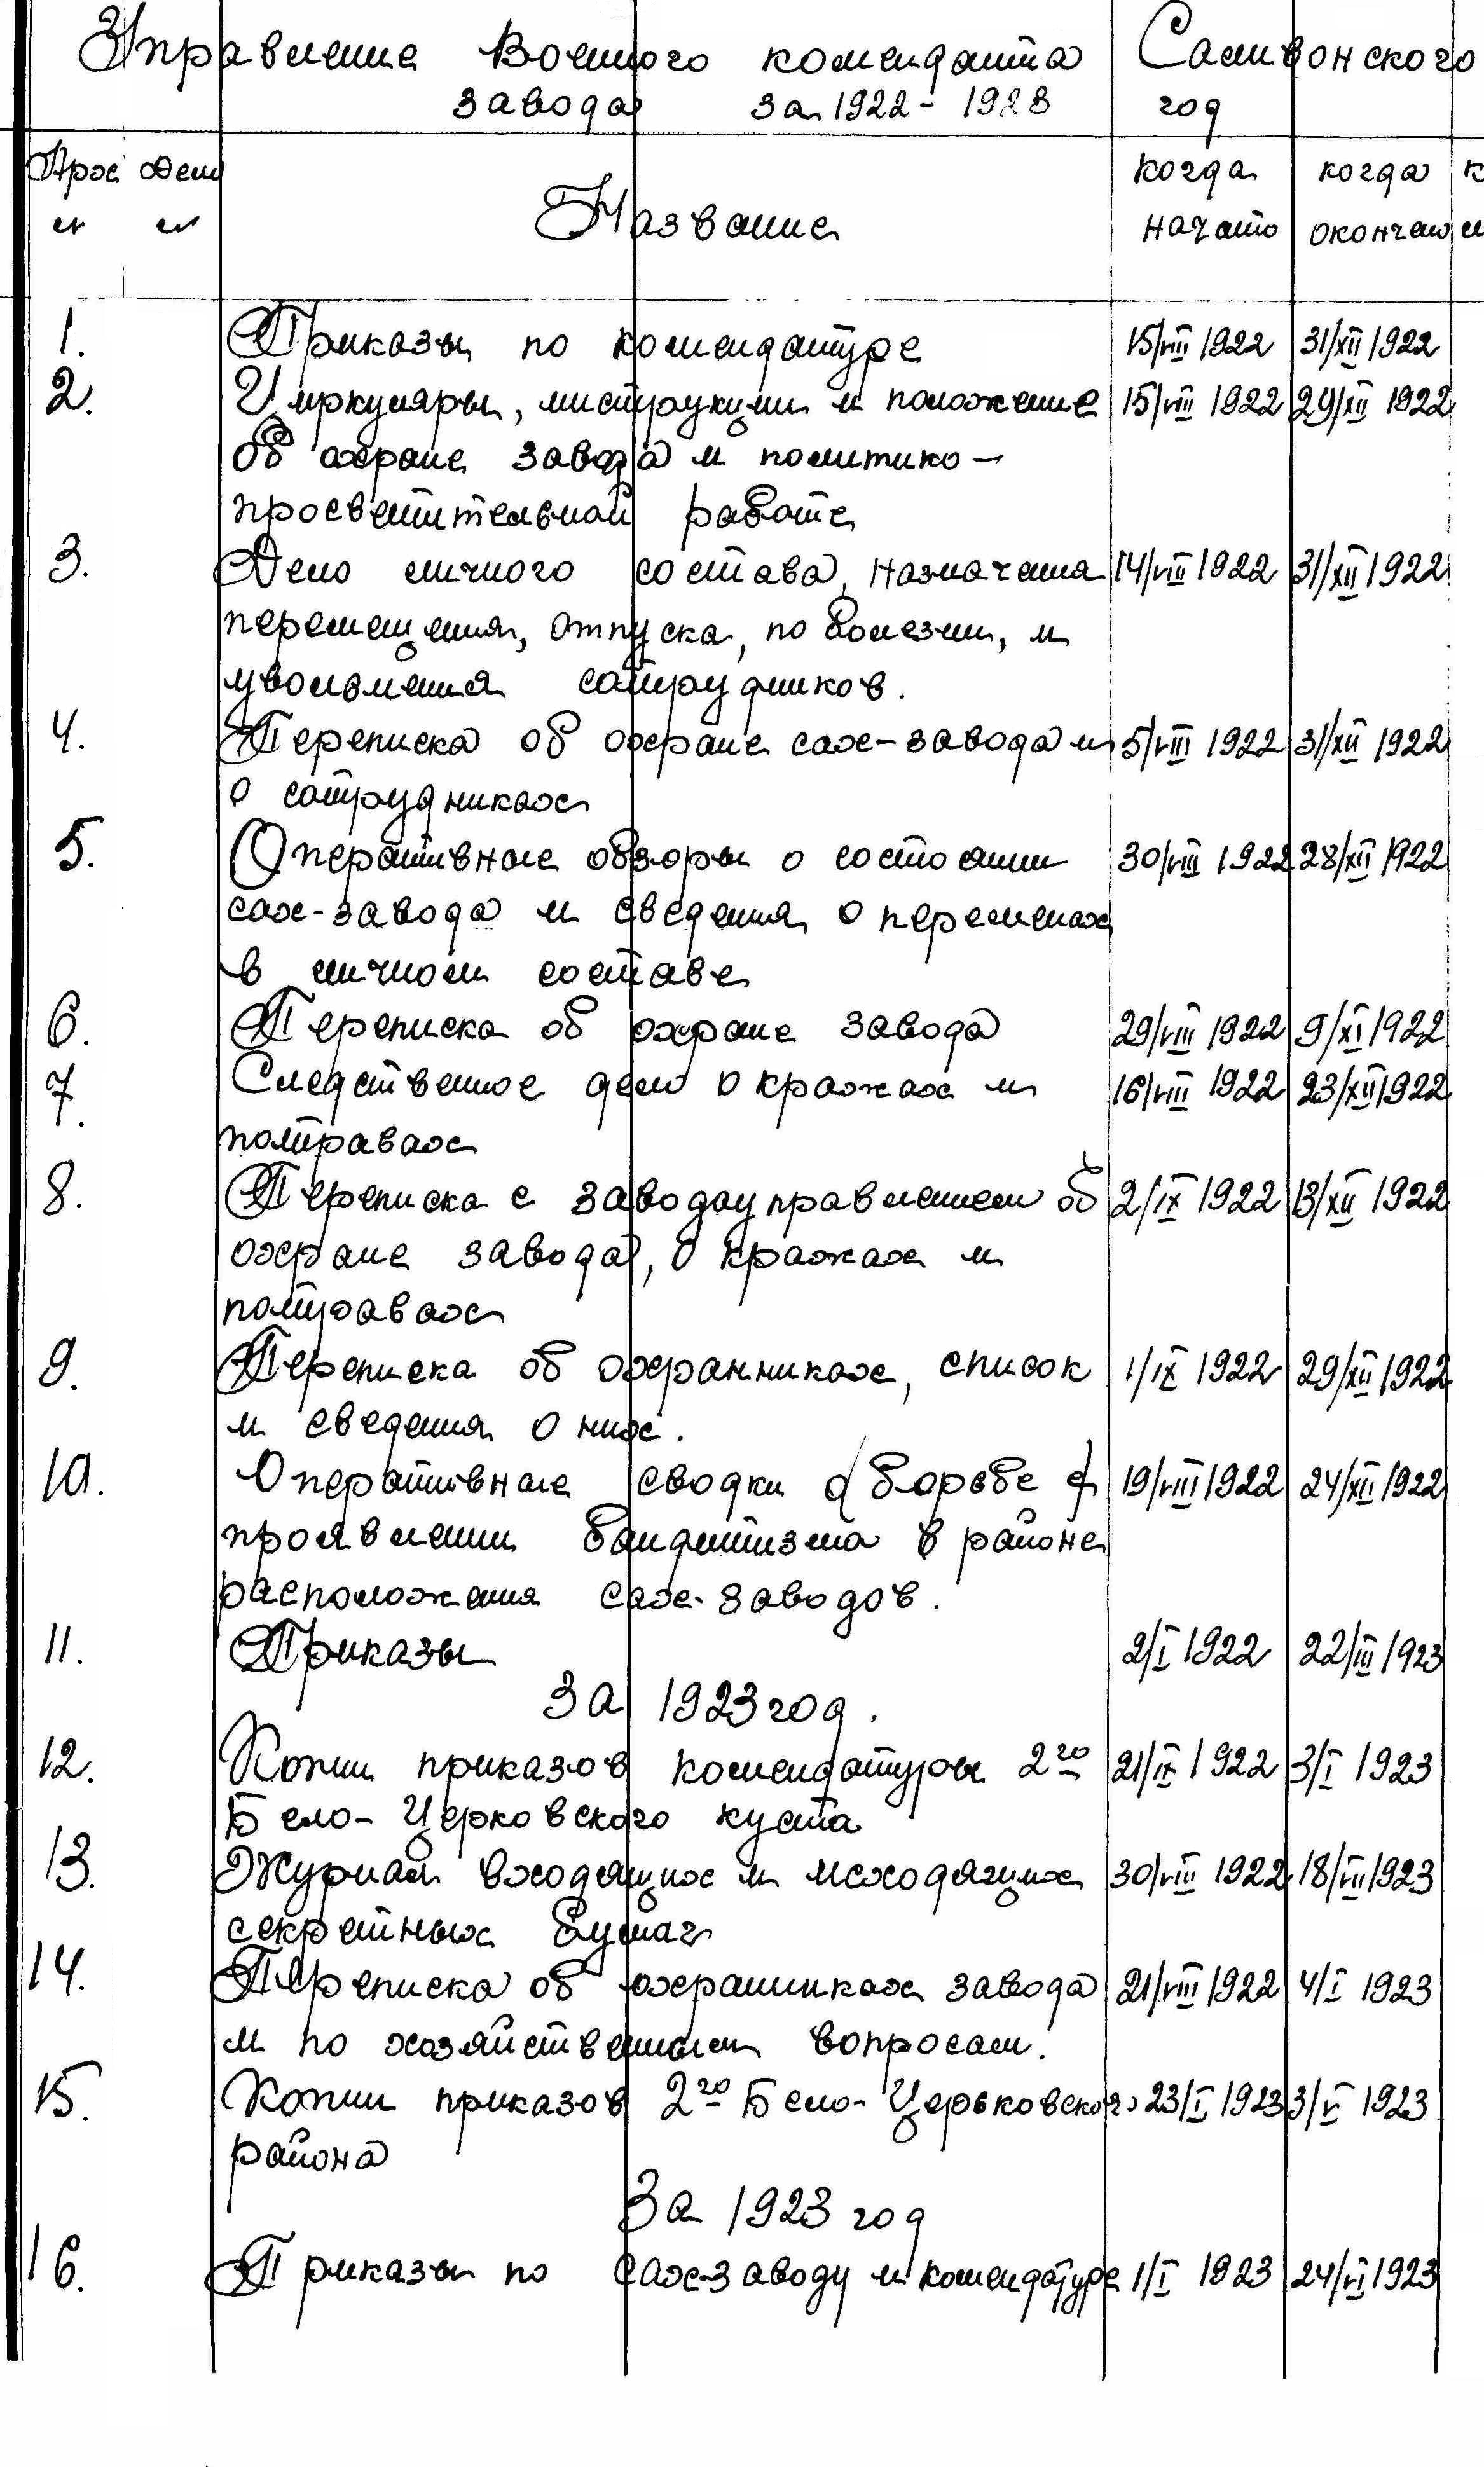 Управление Военного коменданта Саливонского
завода за 1922 - 1923 год
Арх Дела когда когда
№ № Название начато окончено
1. Приказы по комендатуре 15/VIII 1922 31/XII 1922
2. Циркуляры, инструкции и положение 15/VIII 1922 29/XII 1922
об охране завода и политико-
просветительной работе
3. Дело личного состава, назначения 14/VIII 1922 31/XII 1922
перемещения, отпуска, по болезни, и
увольнения сотрудников.
4. Переписка об охране сах-завода и 5/VIII 1922 31/XII 1922
о сотрудниках
5. Оперативные обзоры о состоянии 30/VIII 1922 28/XII 1922
сах-завода и сведения о переменах
в личном составе
6. Переписка об охране завода 29/VIII 1922 9/XI 1922
7. Следственное дело о кражах и 16/VIII 1922 23/XII 1922
потравах
8. Переписка с заводоуправлением об 2/IX 1922 13/XII 1922
охране завода, о кражах и
потравах
9. Переписка об охранниках, список 1/IX 1922 29/XII 1922
и сведения о них.
10. Оперативные сводки о борьбе с 19/VIII 1922 24/XII 1922
проявлении бандитизма в районе
расположения сах-заводов.
11. Приказы 2/I 1922 22/III 1923
За 1923 год.
12. Копии приказов комендатуры 2го 21/IX 1922 3/I 1923
Бело-Церковского куста
13. Журнал входящих и исходящих 30/VIII 1922 18/VII 1923
секретных бумаг
14. Переписка об охранниках завода 21/VIII 1922 4/I 1923
и по хозяйственным вопросам.
15. Копии приказов 2го Бело-Церьковского 23/I 1923 3/V 1923
района
За 1923 год
16. Приказы по сах-заводу и комендатуре 1/I 1923 24/VI 1923